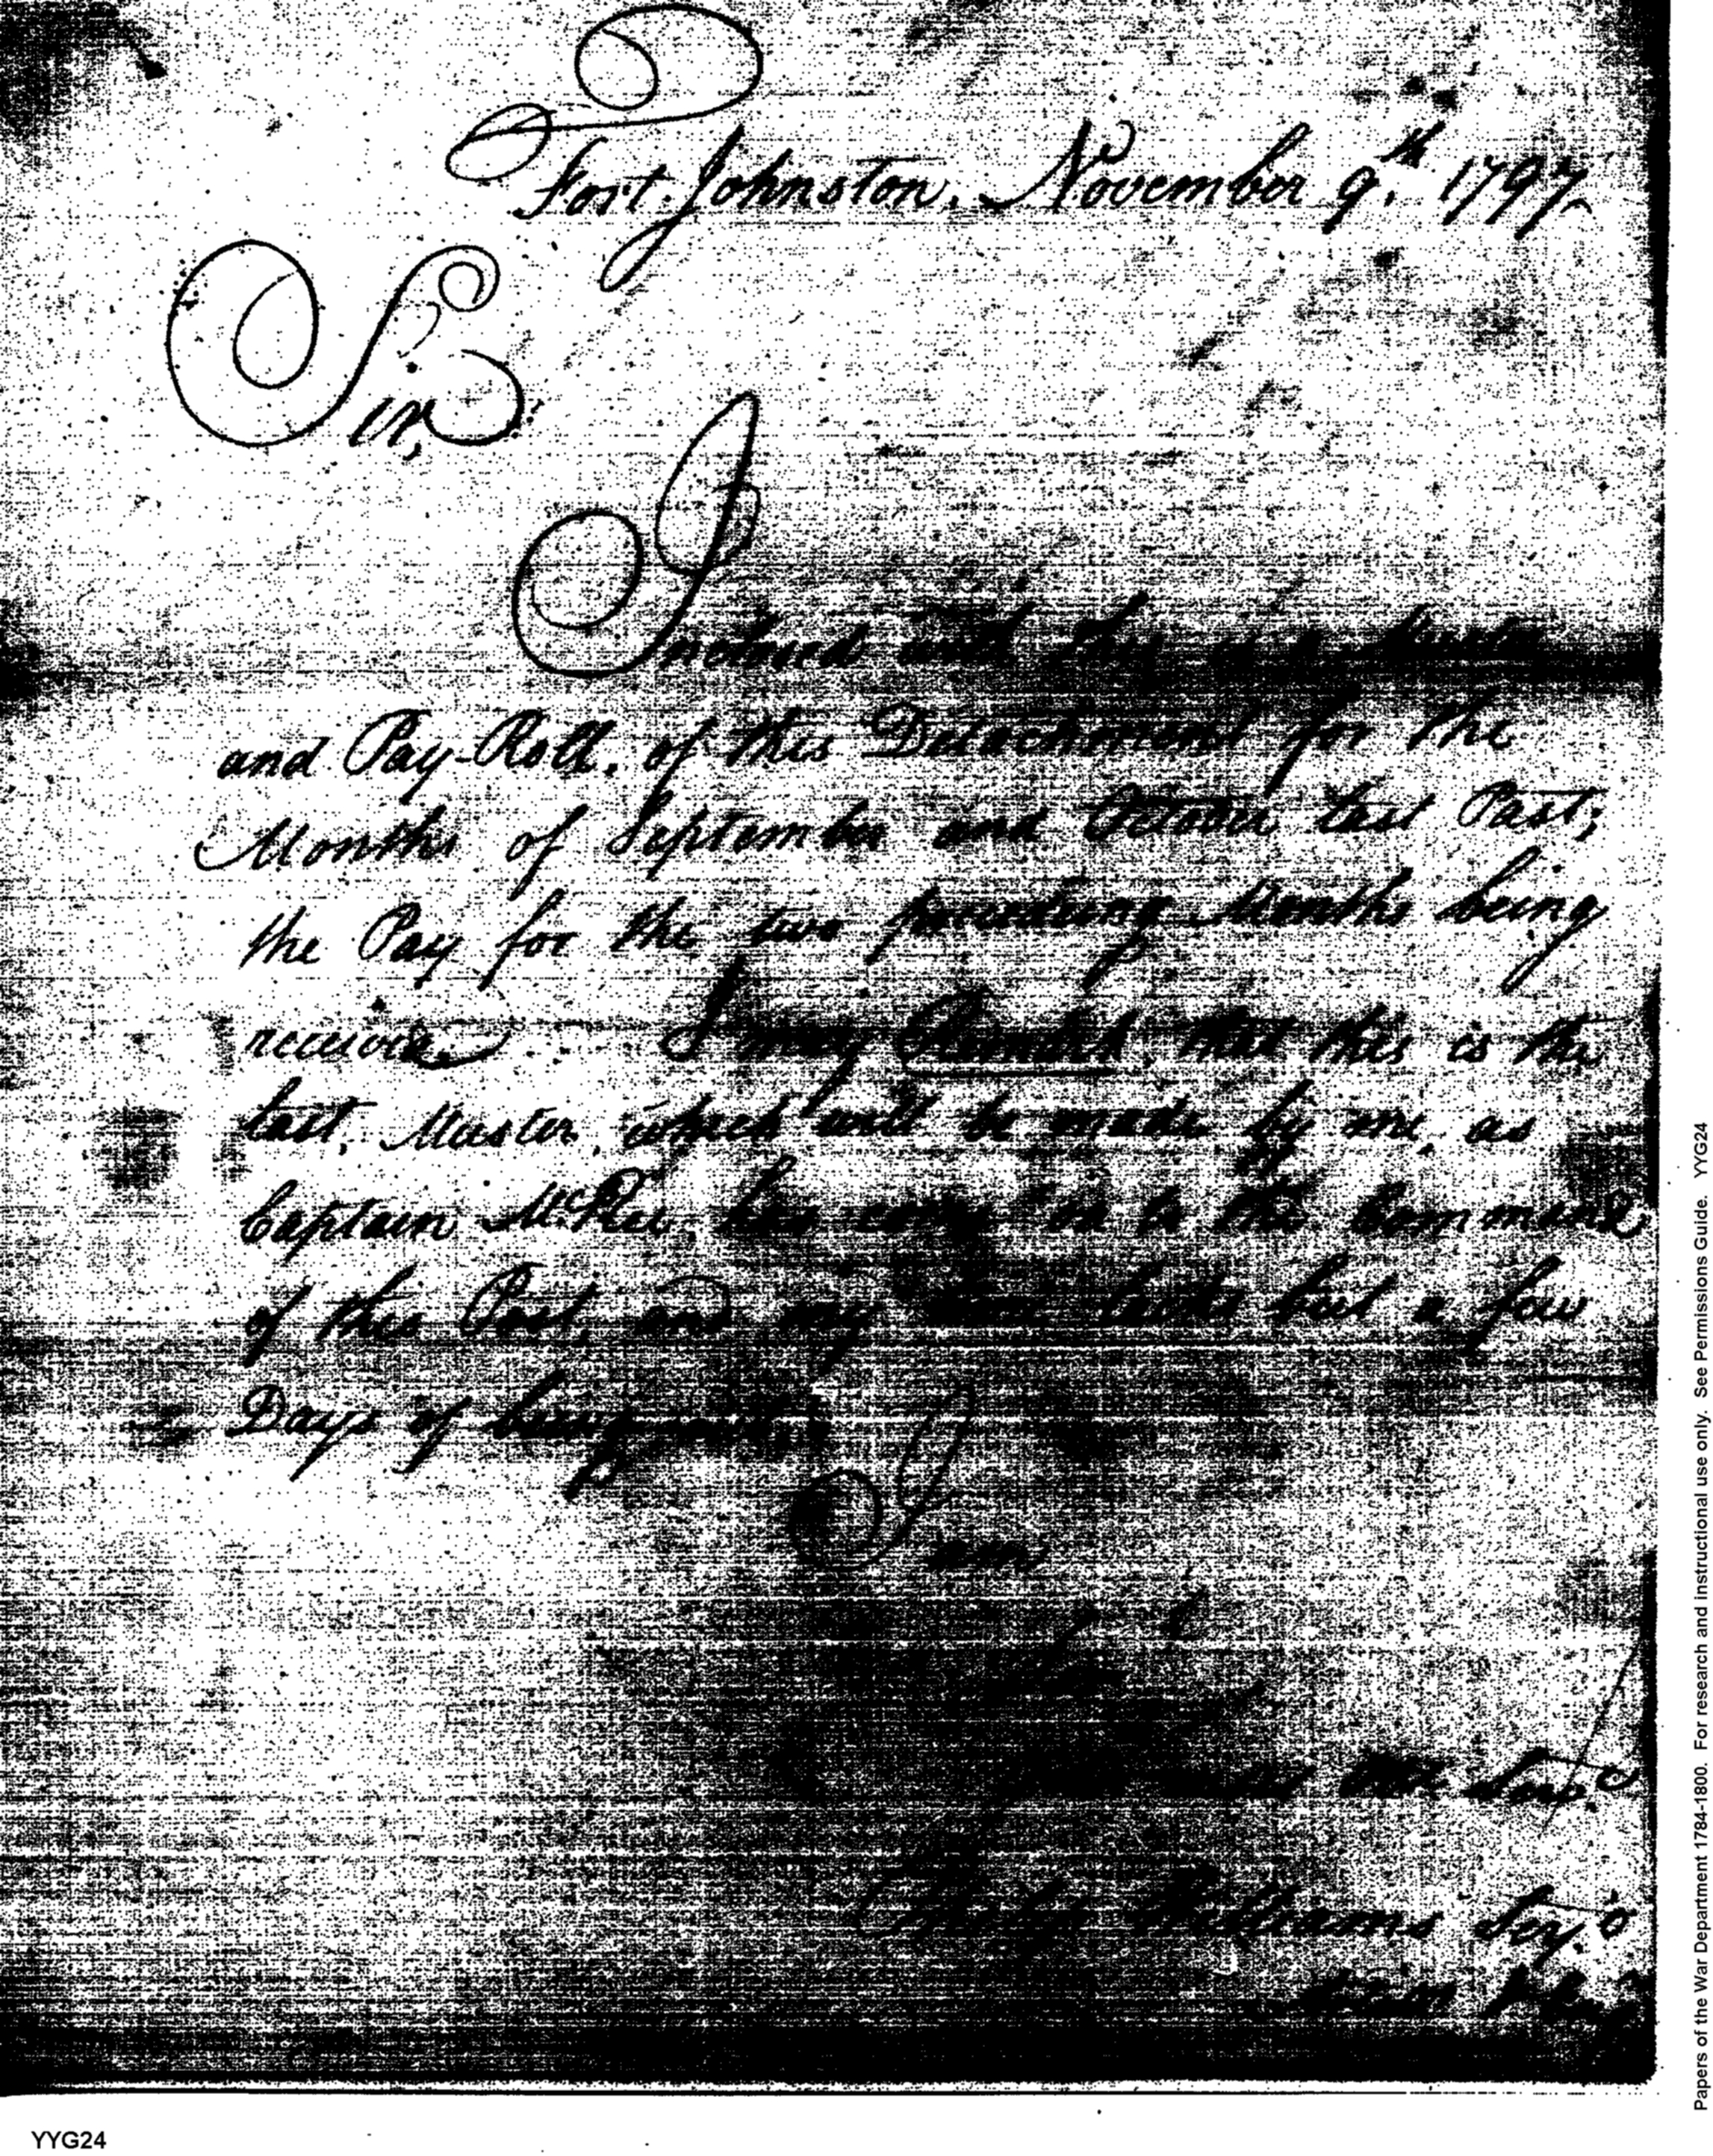 Fort. Johnston, November 9.th 1797
Sir,
Inclosed with this is a Muster
and Pay-Roll, of this Detachment for the
Months of September and October last Past;
the Pay for the two preceeding Months being
received. I may Remark, that this is the
last, Muster, which will be made by me, as
Captain McRee, has come on to the Command
of this Post, and my time lacks but a few
Days of being out,
I am
Sir
Williams Serj.t
Papers of the War Department 1784-1800. For research and instructional use only. See Permissions Guide. YYG24
YYG24